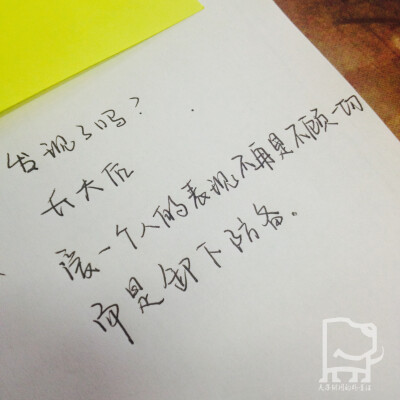 发现了吗？
长大后
爱一个人的表现不再是不顾一切
而是卸下防备。